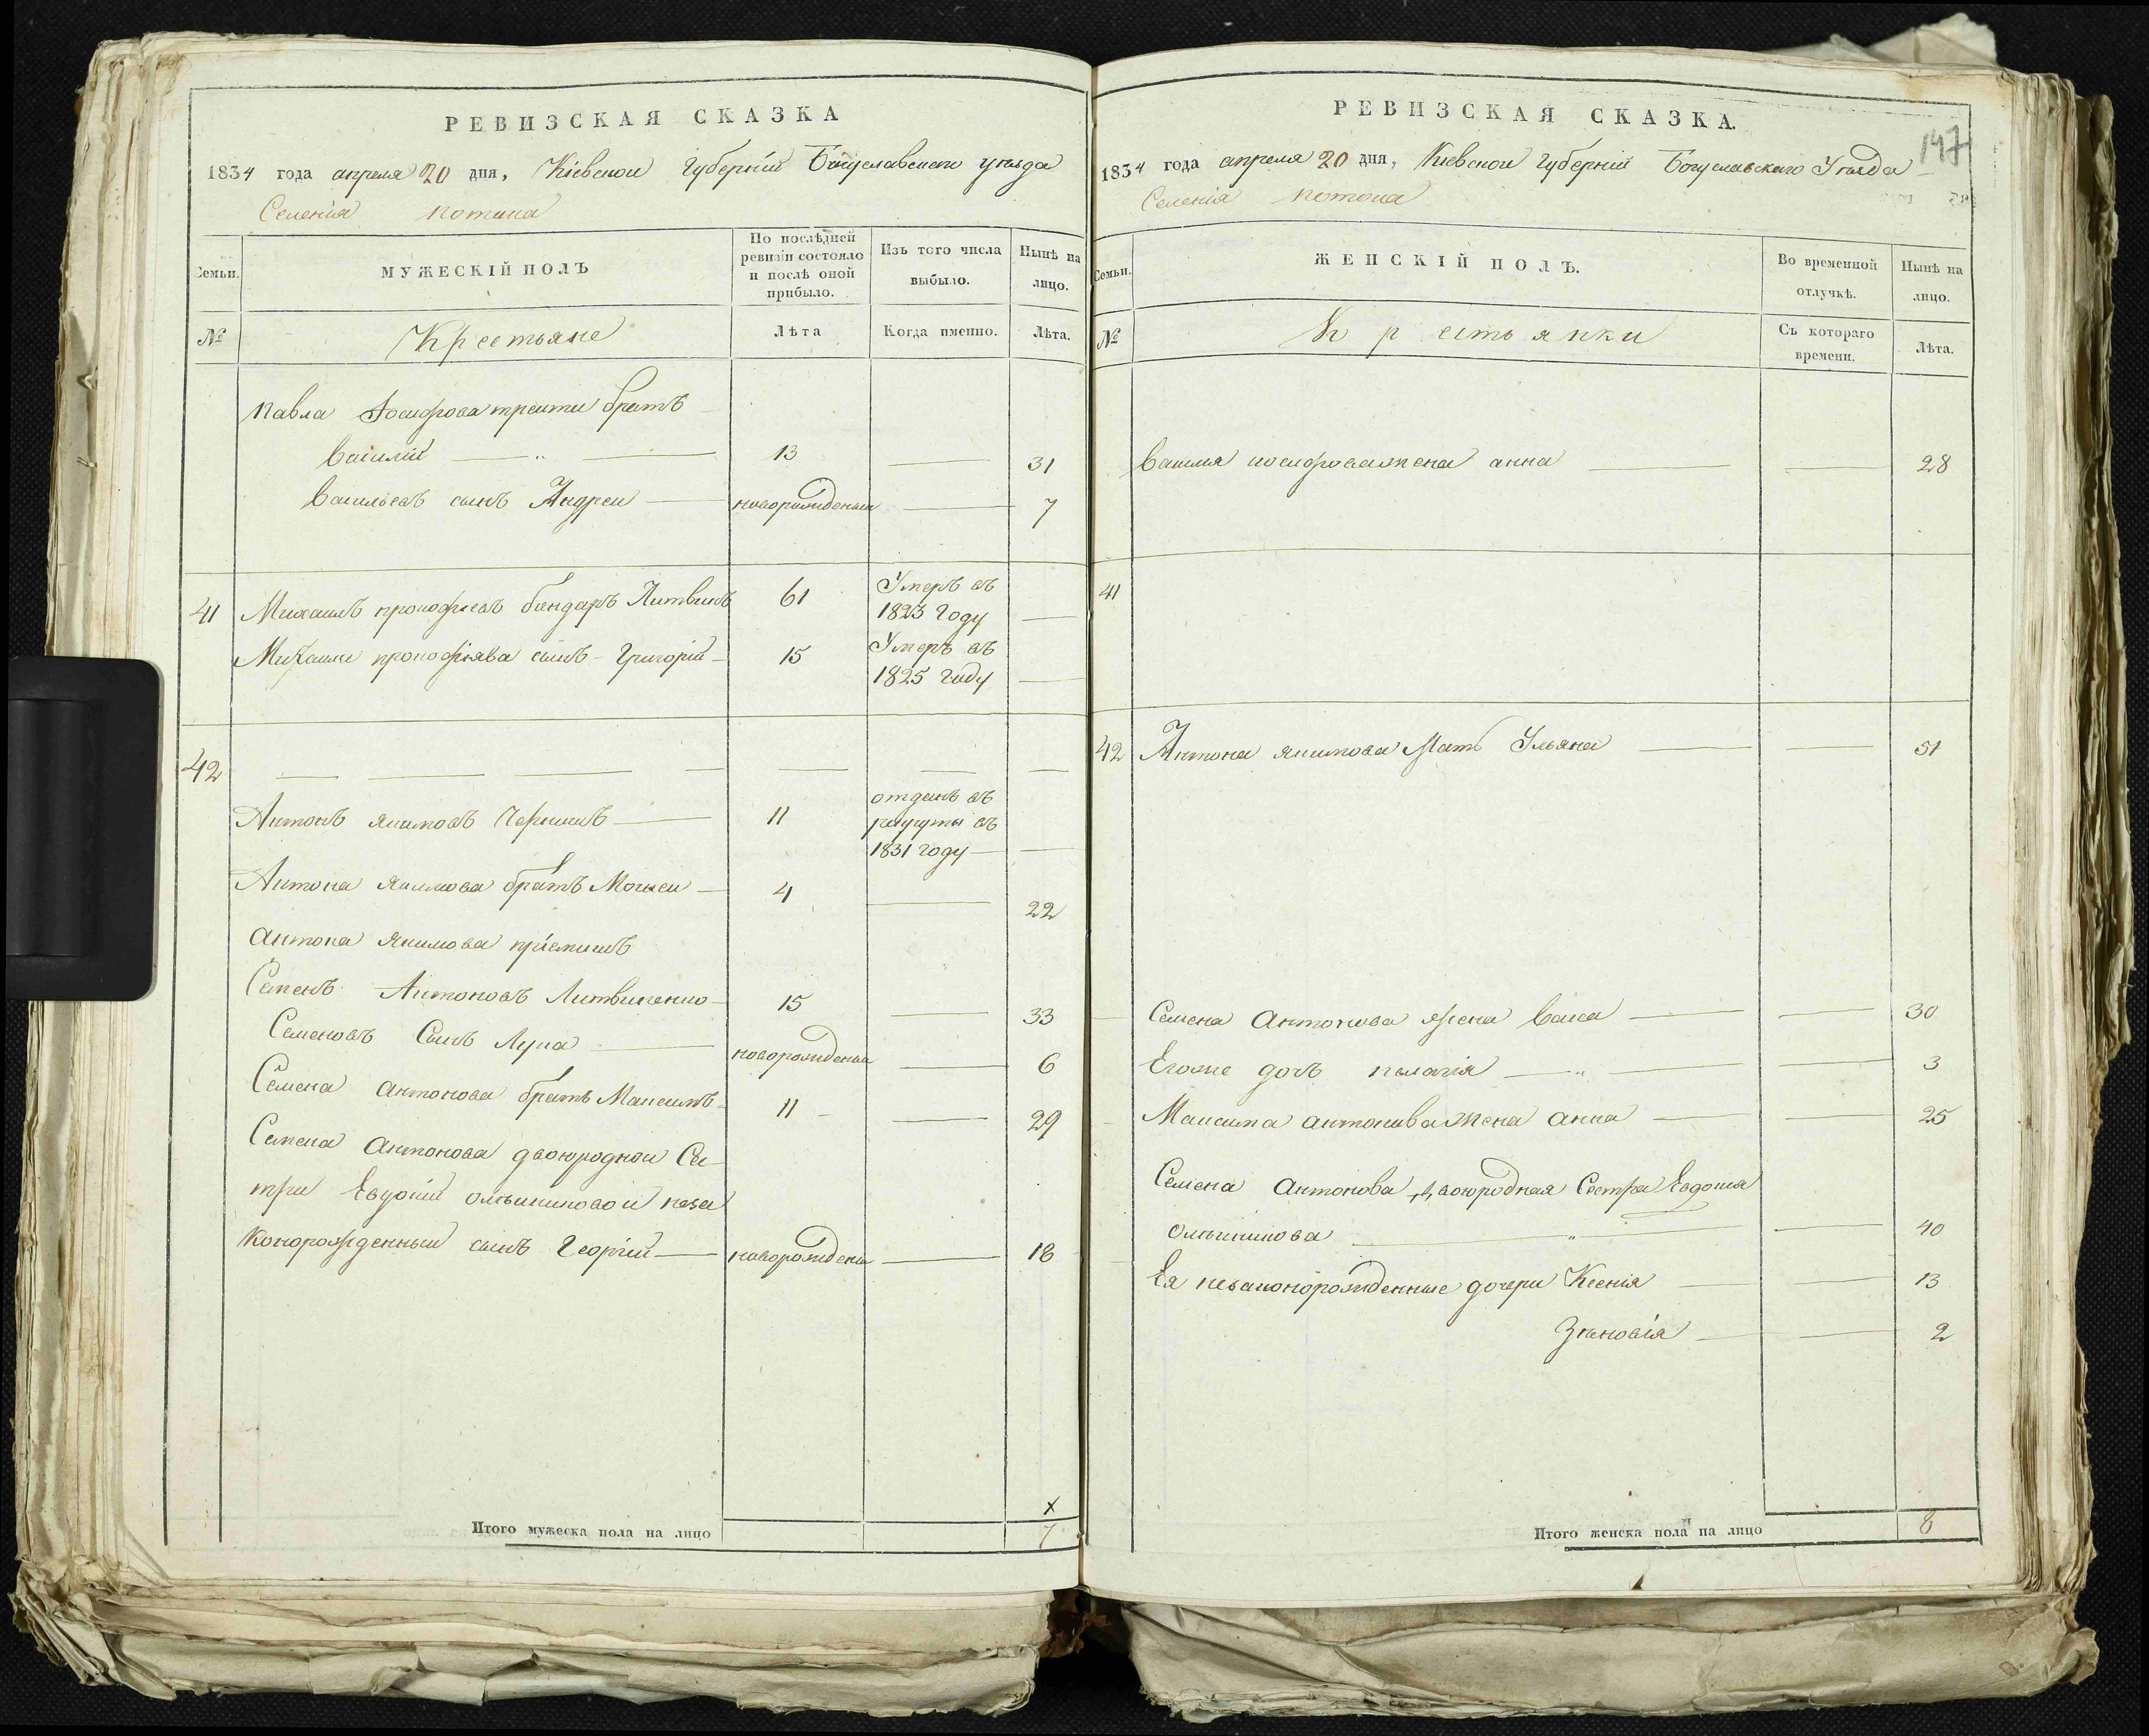 РЕВИЗСКАЯ СКАЗКА
1834 года апреля 20 дня, Кіевской Губерніи Богуславского уѣзда
Селенія Потока
Семьи.
МУЖЕСКІЙ ПОЛЪ
По послѣдней ревизіи состояло и послѣ оной прибыло.
Изъ того числа выбыло.
Нынѣ на лицо.
№
Крестьяне
Лѣта
Когда именно.
Лѣта.
Павла Іосифова третий братъ
Василій 13 31
Васильевъ сынъ Андрей новорожденый 7
41 Михаилъ прокофіевъ бондарь Литвинъ 61 Умеръ въ
1823 году
Михаила прокофіява сынъ Григорій 15 Умеръ въ
1825 году
42
Антонъ якимовъ Чернышъ 11 отданъ въ
рекруты въ
1831 году
Антона якимова братъ Мойсей 4 22
Антона якимова пріемышъ
Семенъ Антоновъ Литвиненко 15 33
Семеновъ Сынъ Лука новорожденый 6
Семена антонова братъ Максимъ 11 29
Семена антонова двоюродной Сес
тры Евдокіи неза
конорожденный сынъ Георгій новорожден 18
Итого мужеска пола на лицо 7
РЕВИЗСКАЯ СКАЗКА.
147
1834 года апреля 20 дня, Кіевской Губерніи Богуславского Уѣзда
Селенія Потока
Семьи.
ЖЕНСКІЙ ПОЛЪ.
Во временной отлучкѣ.
Нынѣ на лицо.
№
Крестьянки
Съ котораго времени.
Лѣта.
Василя иосифова жена анна 28
41
42 Антона якимова Мать Ульяна 51
Семена Антонова жена Васса 30
Егоже дочь пелагія 3
Максима антонова Жена анна 25
Семена Антонова двоюродная Сестра Евдокія
40
Ея незаконорожденные дочери Ксенія 13
Зѣновія 2
Итого женска пола на лицо 8